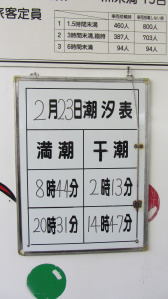 旅客定員
1 1.5時間未満 460人 800人
2 3時間未満,臨時 387人 703人
3 6時間未満 94人 94人
2月23日潮汐表
満潮 干潮
8時44分 2時13分
20時31分 14時47分